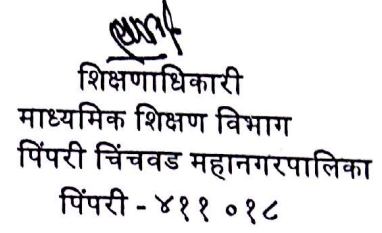 शिक्षणाधिकारी
माध्यमिक शिक्षण विभाग
पिंपरी चिंचवड महानगरपालिका
पिंपरी - ४११ ०१८